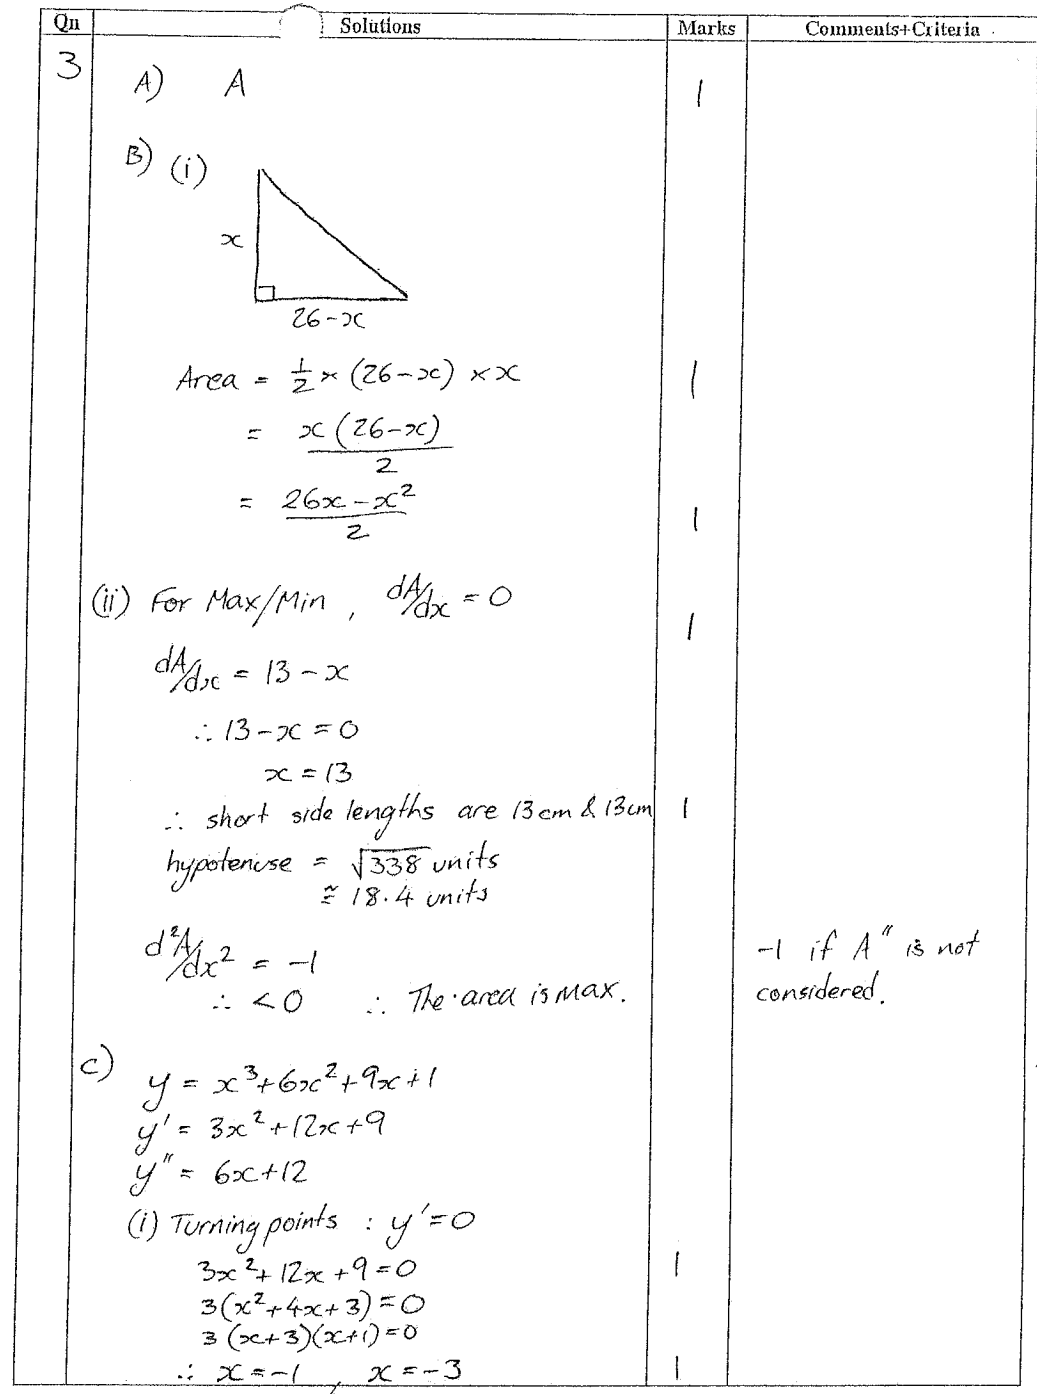 Qn Solutions Marks Comments+Criteria
3
A) A 1
B) (i)
x
26-x
Area = 1/2 × (26-x) × x 1
= x(26-x)/2
= 26x-x²/2 1
(ii) For Max/Min, dA/dx = 0 1
dA/dx = 13-x
∴ 13-x = 0
x = 13
∴ short side lengths are 13cm & 13cm 1
hypotenuse = √338 units
≅ 18.4 units
d²A/dx² = -1 -1 if A" is not
∴ <0 ∴ The area is max. considered.
c)
y = x³+6x²+9x+1
y' = 3x²+12x+9
y" = 6x+12
(i) Turning points : y'=0
3x²+12x+9=0 1
3(x²+4x+3)=0
3(x+3)(x+1)=0
∴ x=-1, x=-3 1